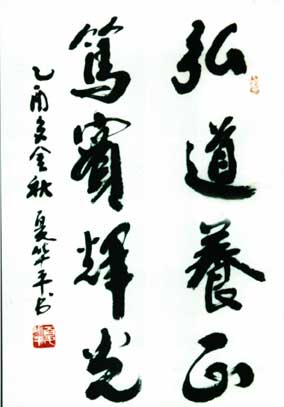 弘道養正
篤實輝光
乙酉年金秋夏华平书